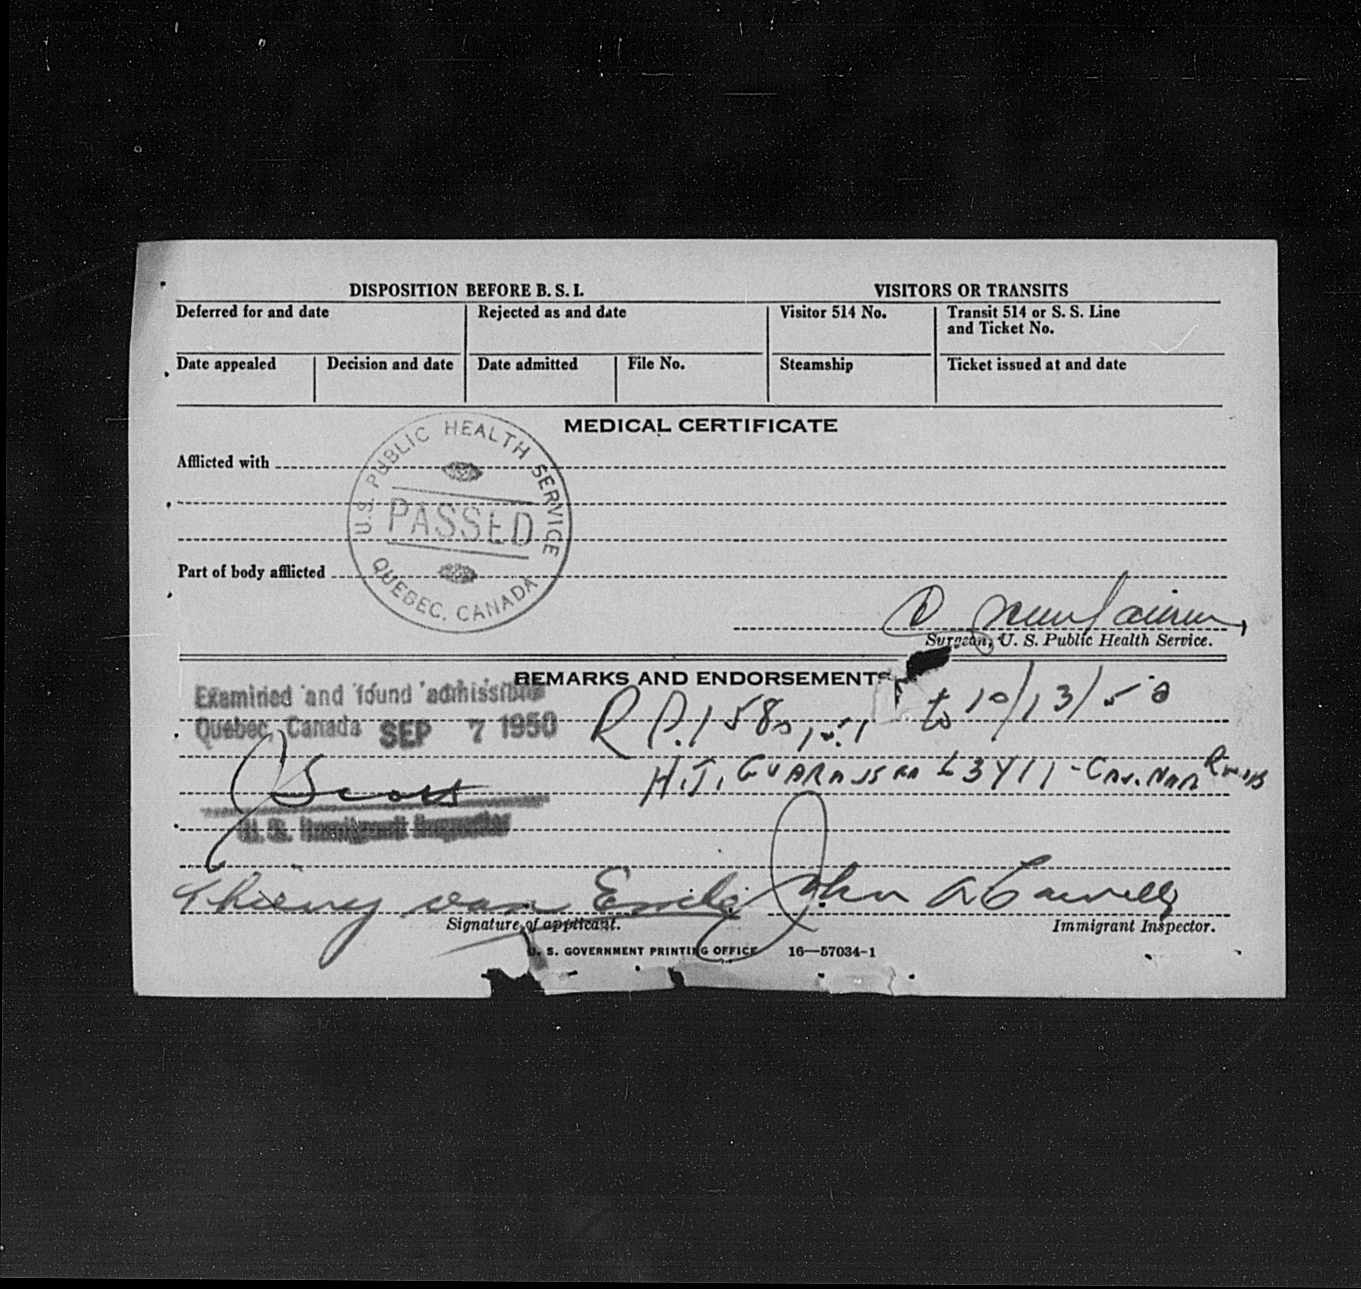 DISPOSITION BEFORE B. S. I.
VISITORS OR TRANSITS
Deferred for and date
Rejected as and date
Visitor 514 No.
Transit 514 or S. S. Line
and Ticket No.
Date appealed
Decision and date
Date admitted
File No.
Steamship
Ticket issued at and date
MEDICAL CERTIFICATE
Afflicted with
U.S. PUBLIC HEALTH SERVICE
PASSED
QUEBEC, CANADA
Part of body afflicted
Surgeon, U. S. Public Health Service.
REMARKS AND ENDORSEMENTS
Examined and found admissible
Quebec, Canada SEP 7 1950
to 10/13/50
Scott
H.J.
U. S. Immigrant Inspector
van John A
Signature of applicant.
Immigrant Inspector.
U. S. GOVERNMENT PRINTING OFFICE 16—57034-1